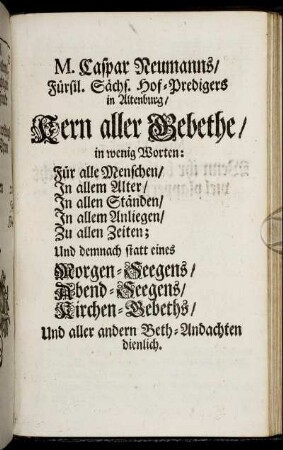 M. Caspar Neumanns/
Fürstl. Sächs. Hof-Predigers
in Altenburg/
Kern aller Gebethe/
in wenig Worten:
Für alle Menschen/
In allem Alter/
In allen Ständen/
In allem Anliegen/
Zu allen Zeiten;
Und demnach statt eines
Morgen-Seegens/
Abend-Seegens/
Kirchen-Gebeths/
Und aller andern Beth-Andachten
dienlich.